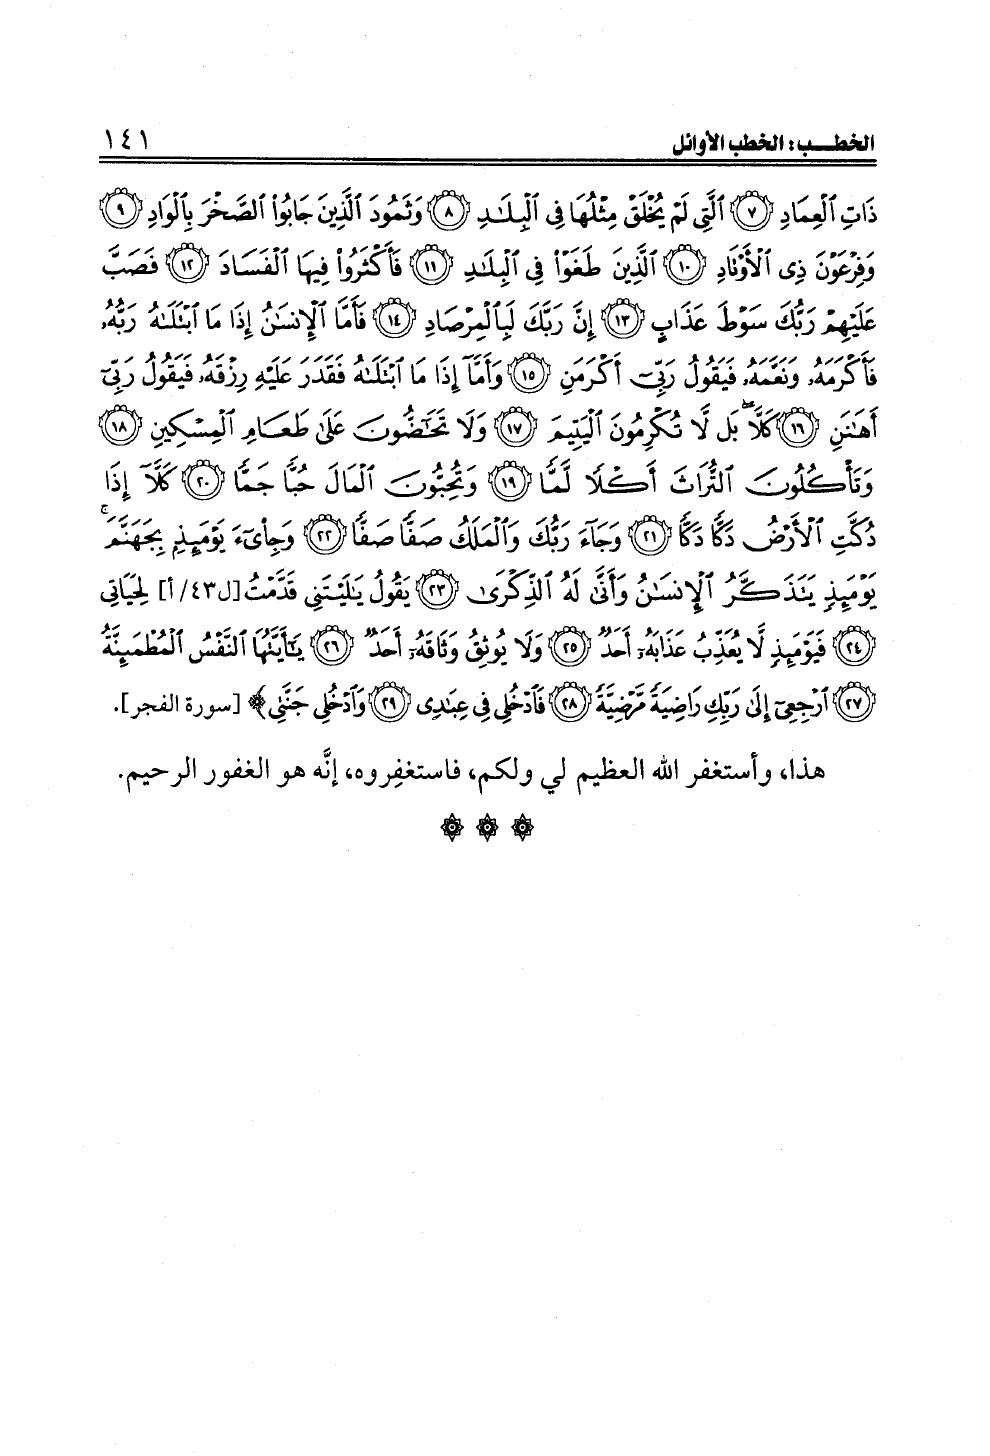 الخطـــب: الخطب الأوائل ١٤١
ذَاتِ ٱلْعِمَادِ ۝٧ ٱلَّتِى لَمْ يُخْلَقْ مِثْلُهَا فِى ٱلْبِلَـٰدِ ۝٨ وَثَمُودَ ٱلَّذِينَ جَابُوا۟ ٱلصَّخْرَ بِٱلْوَادِ ۝٩
وَفِرْعَوْنَ ذِى ٱلْأَوْتَادِ ۝١٠ ٱلَّذِينَ طَغَوْا۟ فِى ٱلْبِلَـٰدِ ۝١١ فَأَكْثَرُوا۟ فِيهَا ٱلْفَسَادَ ۝١٢ فَصَبَّ
عَلَيْهِمْ رَبُّكَ سَوْطَ عَذَابٍ ۝١٣ إِنَّ رَبَّكَ لَبِٱلْمِرْصَادِ ۝١٤ فَأَمَّا ٱلْإِنسَـٰنُ إِذَا مَا ٱبْتَلَىٰهُ رَبُّهُۥ
فَأَكْرَمَهُۥ وَنَعَّمَهُۥ فَيَقُولُ رَبِّىٓ أَكْرَمَنِ ۝١٥ وَأَمَّآ إِذَا مَا ٱبْتَلَىٰهُ فَقَدَرَ عَلَيْهِ رِزْقَهُۥ فَيَقُولُ رَبِّىٓ
أَهَـٰنَنِ ۝١٦ كَلَّا ۖ بَل لَّا تُكْرِمُونَ ٱلْيَتِيمَ ۝١٧ وَلَا تَحَـٰٓضُّونَ عَلَىٰ طَعَامِ ٱلْمِسْكِينِ ۝١٨
وَتَأْكُلُونَ ٱلتُّرَاثَ أَكْلًا لَّمًّا ۝١٩ وَتُحِبُّونَ ٱلْمَالَ حُبًّا جَمًّا ۝٢٠ كَلَّآ إِذَا
دُكَّتِ ٱلْأَرْضُ دَكًّا دَكًّا ۝٢١ وَجَآءَ رَبُّكَ وَٱلْمَلَكُ صَفًّا صَفًّا ۝٢٢ وَجِا۟ىٓءَ يَوْمَئِذٍۭ بِجَهَنَّمَ ۚ
يَوْمَئِذٍ يَتَذَكَّرُ ٱلْإِنسَـٰنُ وَأَنَّىٰ لَهُ ٱلذِّكْرَىٰ ۝٢٣ يَقُولُ يَـٰلَيْتَنِى قَدَّمْتُ [ل٤٣/أ] لِحَيَاتِى
۝٢٤ فَيَوْمَئِذٍ لَّا يُعَذِّبُ عَذَابَهُۥٓ أَحَدٌ ۝٢٥ وَلَا يُوثِقُ وَثَاقَهُۥٓ أَحَدٌ ۝٢٦ يَـٰٓأَيَّتُهَا ٱلنَّفْسُ ٱلْمُطْمَئِنَّةُ
۝٢٧ ٱرْجِعِىٓ إِلَىٰ رَبِّكِ رَاضِيَةً مَّرْضِيَّةً ۝٢٨ فَٱدْخُلِى فِى عِبَـٰدِى ۝٢٩ وَٱدْخُلِى جَنَّتِى﴾ [سورة الفجر].
هذا، وأستغفر الله العظيم لي ولكم، فاستغفِروه، إنَّه هو الغفور الرحيم.